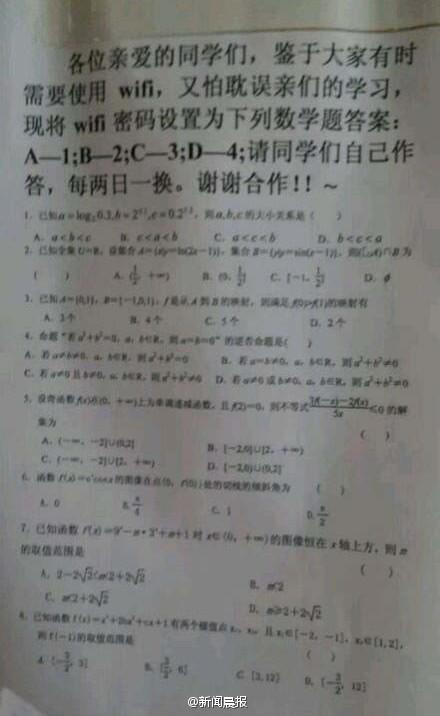 各位亲爱的同学们，鉴于大家有时
需要使用 wifi，又怕耽误亲们的学习，
现将 wifi 密码设置为下列数学题答案：
A—1;B—2;C—3;D—4;请同学们自己作
答，每两日一换。谢谢合作!! ~
1. 已知a=log₂0.3,b= ,c= ，则a,b,c的大小关系是（ ）
A. a<b<c B. c<a<b C. a<c<b D. b<c<a
2. 已知全集U=R，设集合A={x|y=ln(2x−1)}，集合B={y|y=sin(x−1)}，则(∁ᵤA)∩B为
（ ） A. +∞) B. (0, 1/2] C. [−1, 1/2] D. ϕ
3. 已知A={0,1}，B={−1,0,1}，f是从A到B的映射，则满足f(0)>f(1)的映射有
A. 3个 B. 4个 C. 5个 D. 2个
4. 命题“若a²+b²=0，a，b∈R，则a=b=0”的逆否命题是( )
A. 若a≠b≠0，a，b∈R，则a²+b²=0 B. 若a=b≠0，a，b∈R，则a²+b²≠0
C. 若a≠0且b≠0，a，b∈R，则a²+b²≠0 D. 若a≠0或b≠0，a，b∈R，则a²+b²≠0
5. 设奇函数f(x)在(0，+∞)上为单调递减函数，且f(2)=0，则不等式 3f(−x)−2f(x)/5x ≤0 的解
集为 （ ）
A. (−∞，−2]∪(0,2] B. [−2,0]∪[2，+∞)
C. (−∞，−2]∪[2，+∞) D. [−2,0)∪(0,2]
6. 函数f(x)=eˣcosx的图像在点(0，f(0))处的切线的倾斜角为 （ ）
A. 0 B. π/4 C. 1 D. π/2
7. 已知函数 f(x)=9ˣ−m•3ˣ+m+1 对 x∈(0，+∞)的图像恒在x轴上方，则m
的取值范围是 （ ）
A. 2−2√2<m<2+2√2 B. m<2
C. m<2+2√2 D. m≥2+2√2
8. 已知函数f(x)=x³+ +cx+1有两个极值点x₁，x₂，且x₁∈[−2，−1]，x₂∈[1,2]，
则f(−1)的取值范围是 （ ）
A. [−3/2, 3] B. [3/2, 6] C. [3,12] D. [−3/2, 12]
@新闻晨报